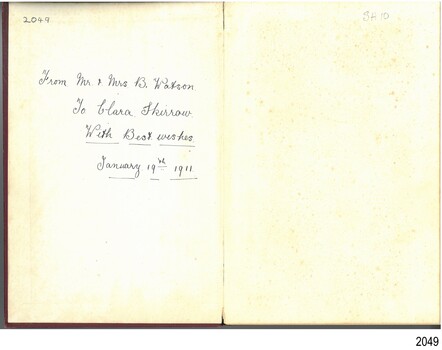 2049
From Mr. & Mrs B. Watson
To Clara Skirrow.
With Best wishes.
January 19th 1911.
2049